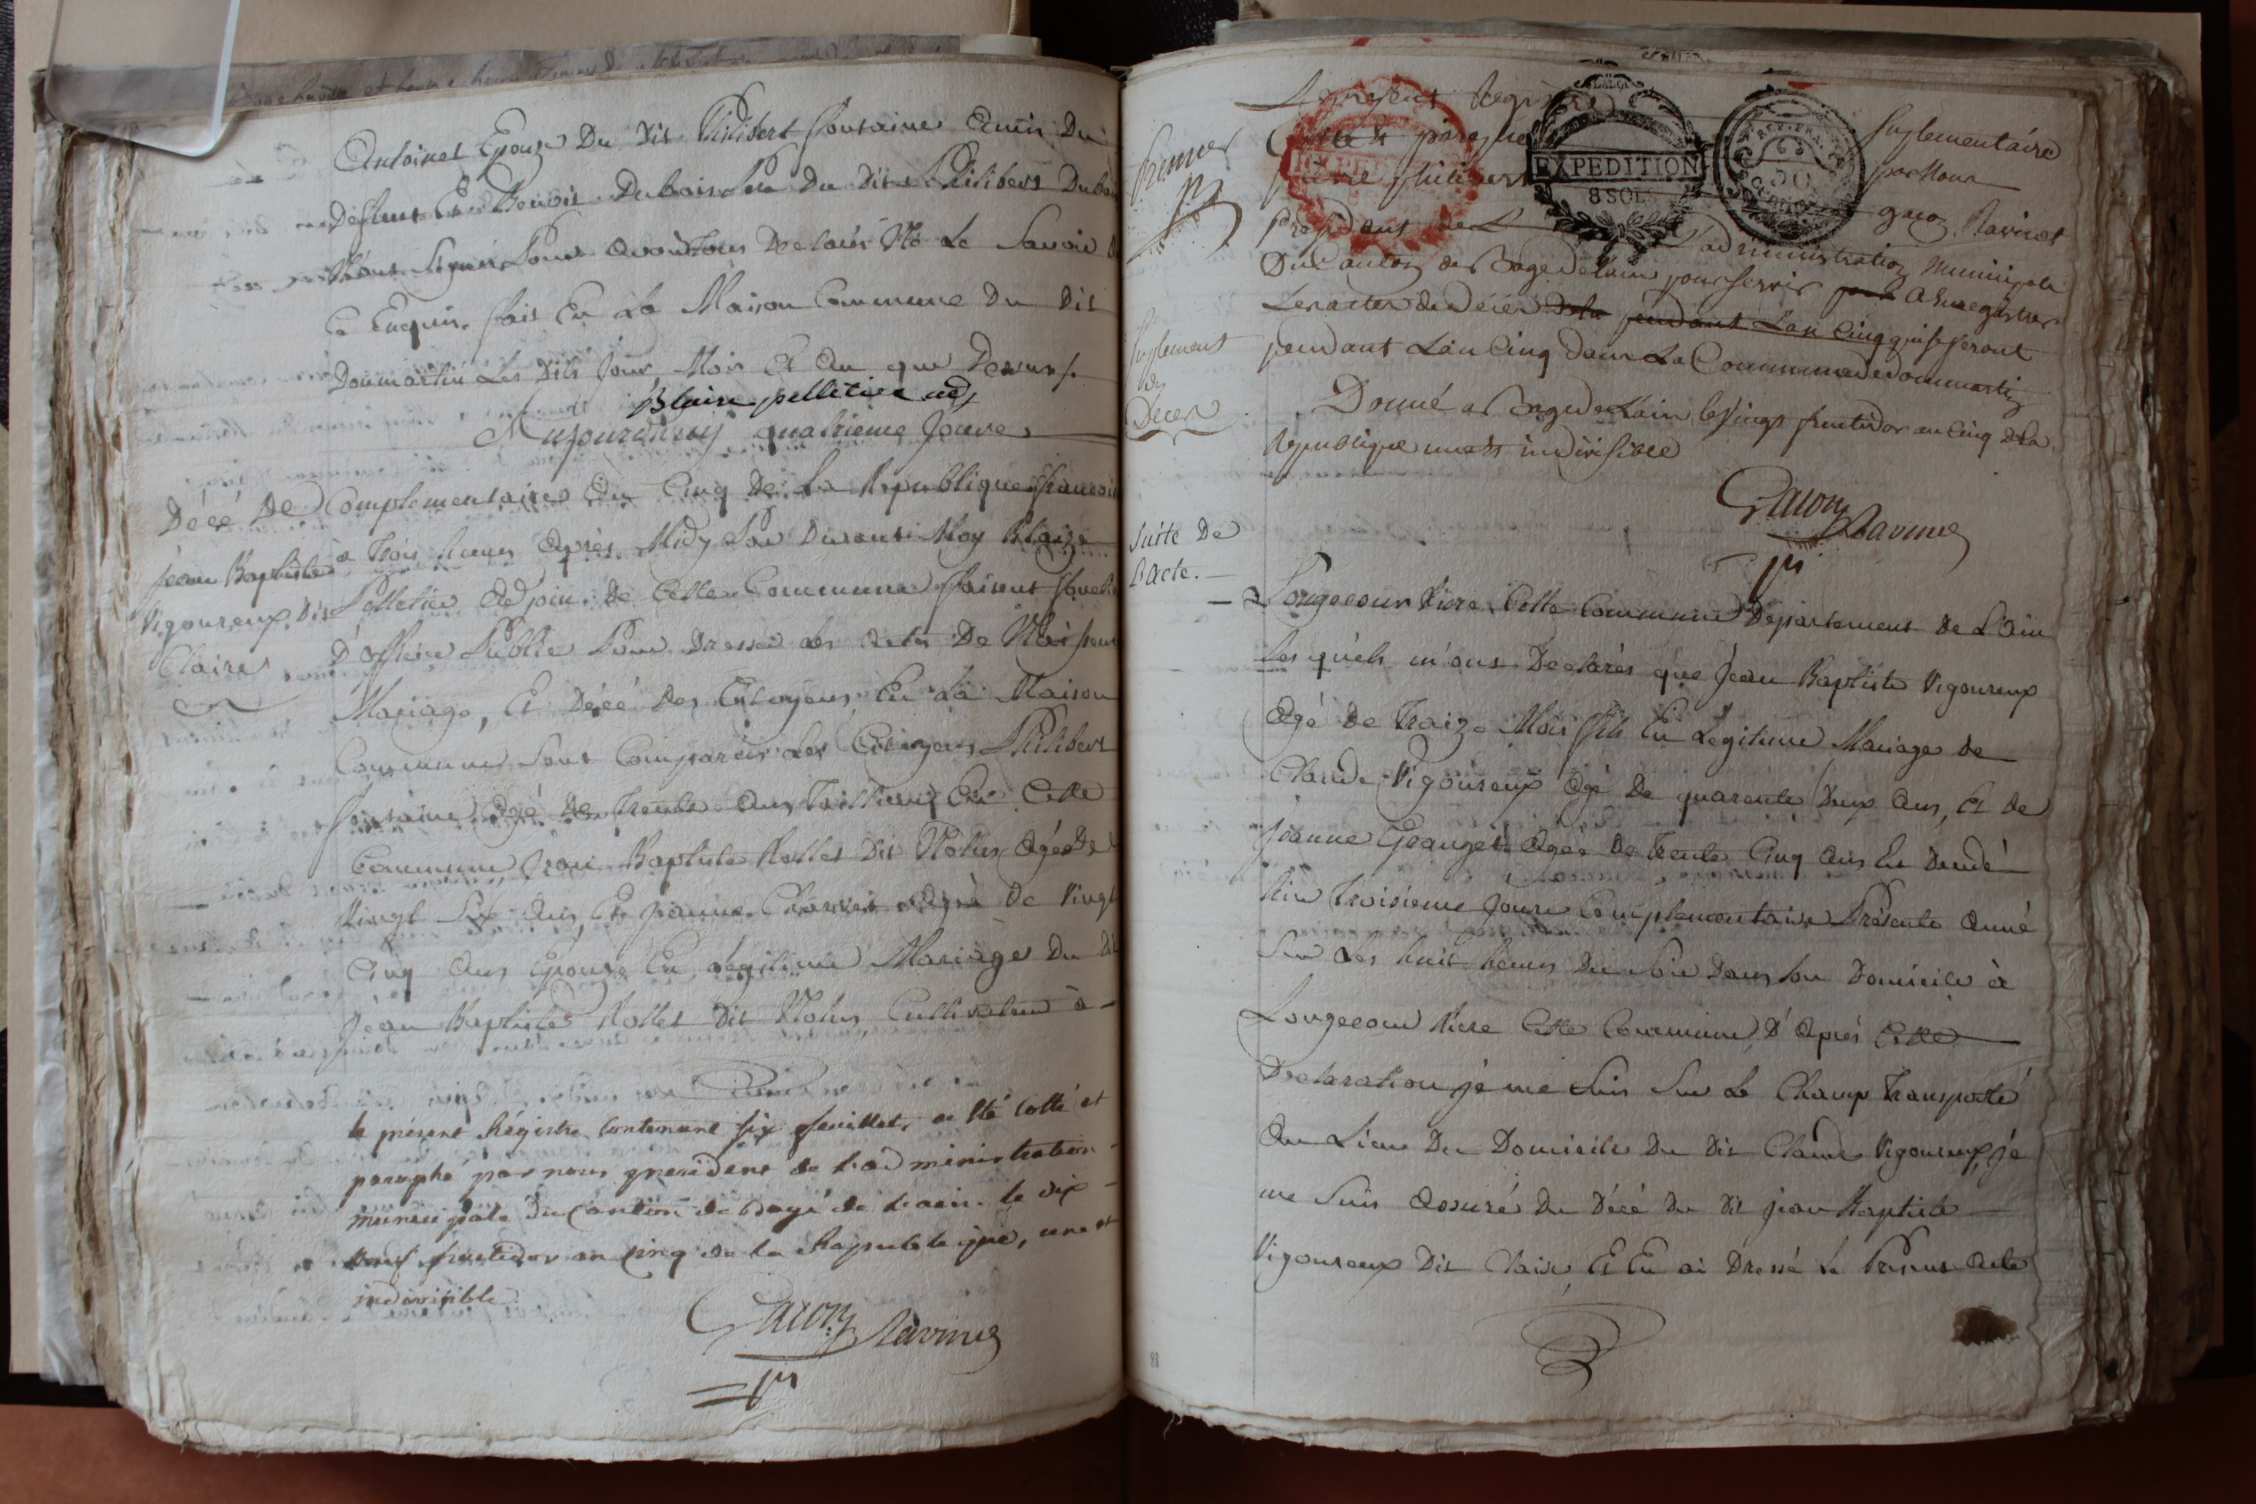 Antoinet Epouze Du Dit Philibert fontaine Amis Du
Défunt Et Benoit Dubois Pere Du Dit Philibert Dubois
N'ont Signés Pour avoir tous Declarés Ne Le Savoir De
Ce Enquis. fait En La Maison Commune Du Dit
Donmartin Les Dits Jour, Mois Et An que Dessus /.
Blaise pelletier adj
Aujourdhuy quatrieme Joure
Décé De
jean Baptiste
Vigoureux Dit
Claire
Complementaire An Cinq De La Republique francoise
a trois heures après Midy Par Devant Moy Blaize
Pelletier Adjoin De Cette Commune faisent
D'officier Publie Pour Dresser des Actes De Naissence
Mariage, Et Décé Des Citoyens En La Maison
Commune Sont Comparûs Les Citoyens Philibert
fontaine Agé De Trente Ans En Cette
Commune Jean Baptiste Rollet Dit Agé De
Vingt Six Ans, Et Jeanne Agée De Vingt
Cinq Ans Epouze En Legitime Mariage Du Dit
Jean Baptiste Rollet Dit Cultivateur à
le présent Régistre Contenant six feuillets a été cotté et
paraphé par nous president de L'administration
municipale Du Canton de Bagé de L'ain. le dix
neuf fructidor an cinq de la République, une et
indivisible
Ravinet
Le present Registre
Suplementaire
Premier
Cotté et paraphé
par Nous
philibert
Ravinet
EXPEDITION
8 SOLS
REP. FRA.
President de L'administration Municipale
Du Canton de Bagé De Lain pour servir a Enregistrer
Les actes de Décés De la pendant Lan Cinq qui se feront
Suplement
de
Déces
pendant L'an Cinq dans La Commune de Dommartin
Donné a Bagé de Lain le vingt fructidor an cinq de la
Republique une et indivisible
Ravinet
Suite De
L'acte.
Longecour Riere Cette Commune Departement De L'ain
Les quels m'ont Declarés que Jean Baptiste Vigoureux
Agé De Traize Mois fils En Legitime Mariage De
Claude Vigoureux Agé De quarente Deux Ans, Et De
Jeanne Granget Agée De Trente Cinq Ans En Décédé
Hier Troisieme Joure Complementaire Présente Anné
Sur Les huit heures Du Soir Dans Son Domicile à
Longecour Riere Cette Commune, D'après Cette
Declaration je me Suis Sur Le Champ Transporté
Au Lieu Du Domicile Du Dit Claude Vigoureux, je
me Suis Assuré Du Décé Du Dit Jean Baptiste
Vigoureux Dit Claire, Et En ai Dressé Le Present Acte